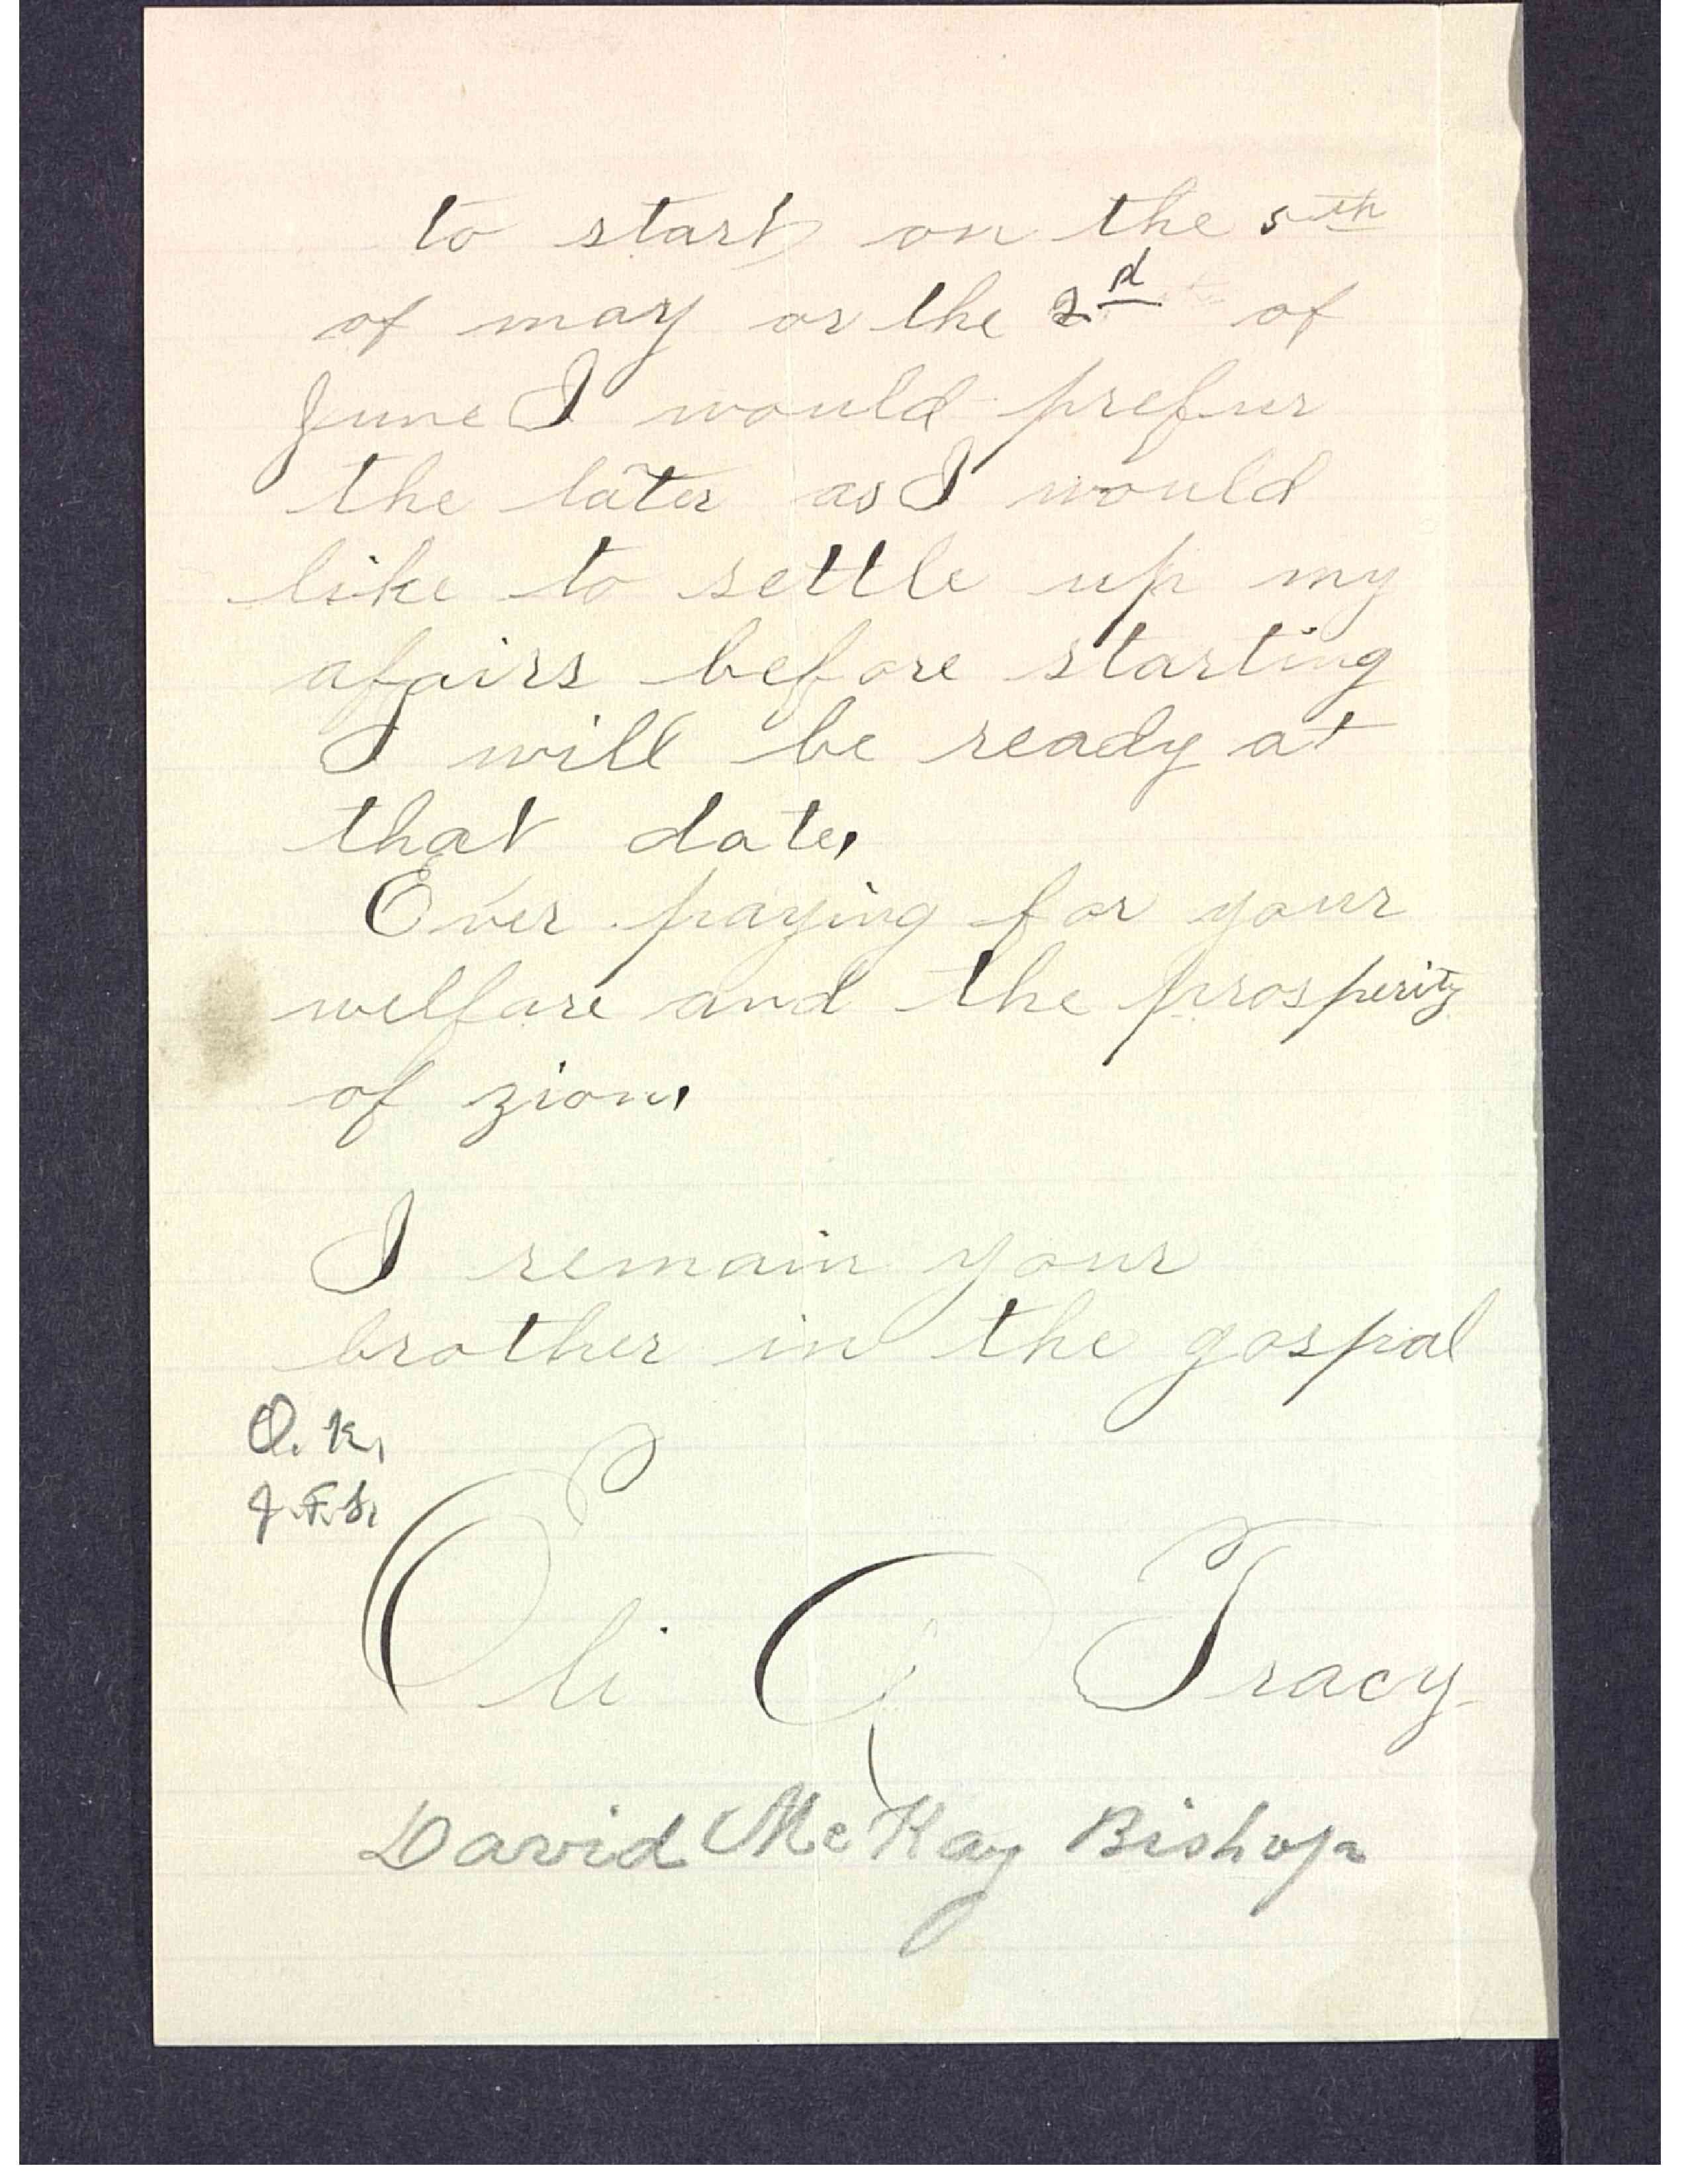 to start on the 5th
of may or the 2d of
June I would prefur
the later as I would
like to settle up my
afairs before starting
I will be ready at
that date,
Ever praying for your
welfare and the prosperity
of zion,
I remain your
brother in the gospal
O. K,
J. F. S,
Eli Tracy
David McKay Bishop